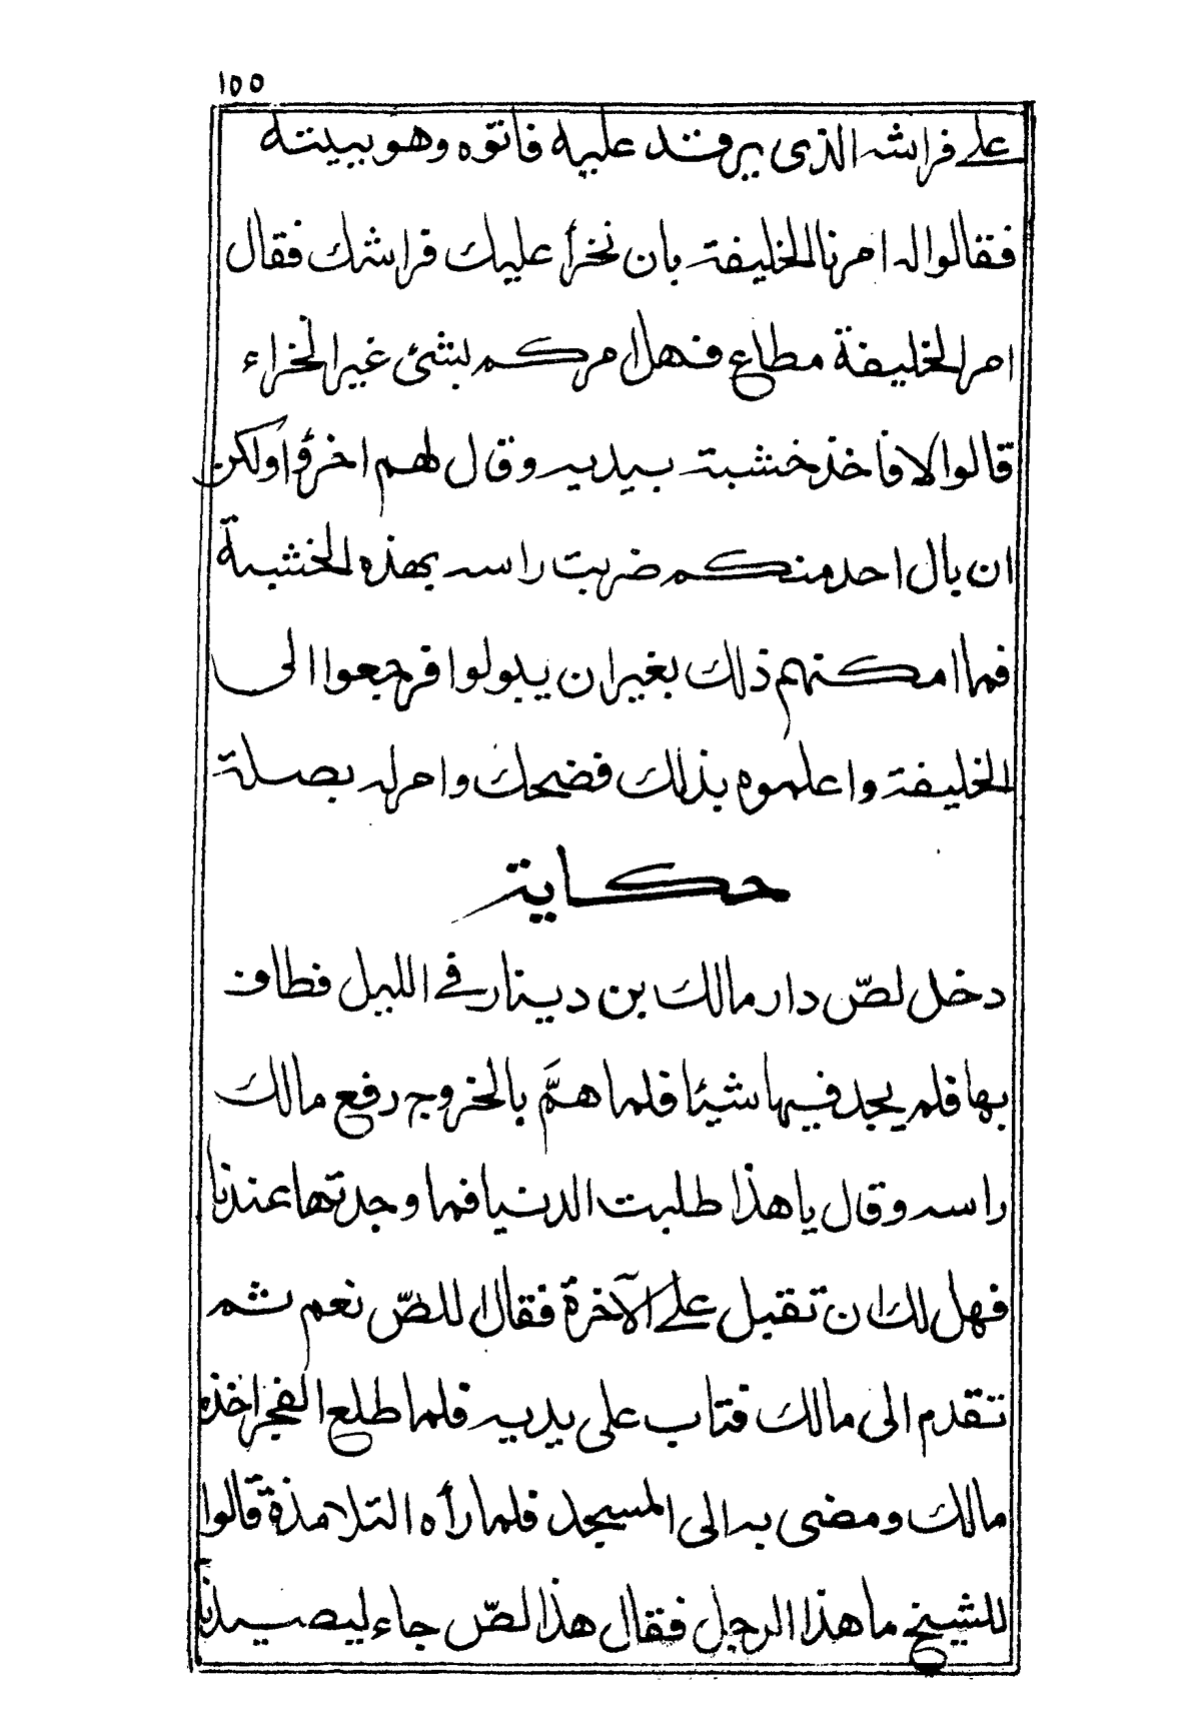 ١٥٥
على فراشه الذى يرقد عليه فاتوه وهو ببيته
فقالوا له امرنا الخليفة بان نخرأ عليك فراشك فقال
امر الخليفة مطاع فهل امركم بشئ غير الخراء
قالوا لا فاخذ خشبة بيديه وقال لهم اخرؤا ولكن
ان بال احد منكم ضربت راسه بهذه الخشبة
فما امكنهم ذلك بغير ان يبولوا فرجعوا الى
الخليفة واعلموه بذلك فضحك وامر له بصلة
حكاية
دخل لصّ دار مالك بن دينار فى الليل فطاف
بها فلم يجد فيها شيئا فلما همَّ بالخروج رفع مالك
راسه وقال يا هذا طلبت الدنيا فما وجدتها عندنا
فهل لك ان تقبل على الآخرة فقال اللصّ نعم ثم
تقدم الى مالك فتاب على يديه فلما طلع الفجر اخذه
مالك ومضى به الى المسجد فلما رأه التلامذة قالوا
للشيخ ما هذا الرجل فقال هذا لصّ جاء ليصيدنا